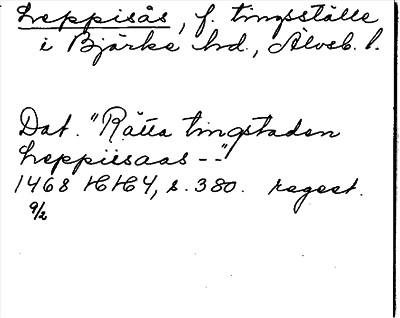 Leppisås, f. tingsställe
i Bjärke hd., Älvsb. l.
Dat. "Rätta tingstaden
Leppiisaas --"
1468 HH4, s. 380. regest.
9/2